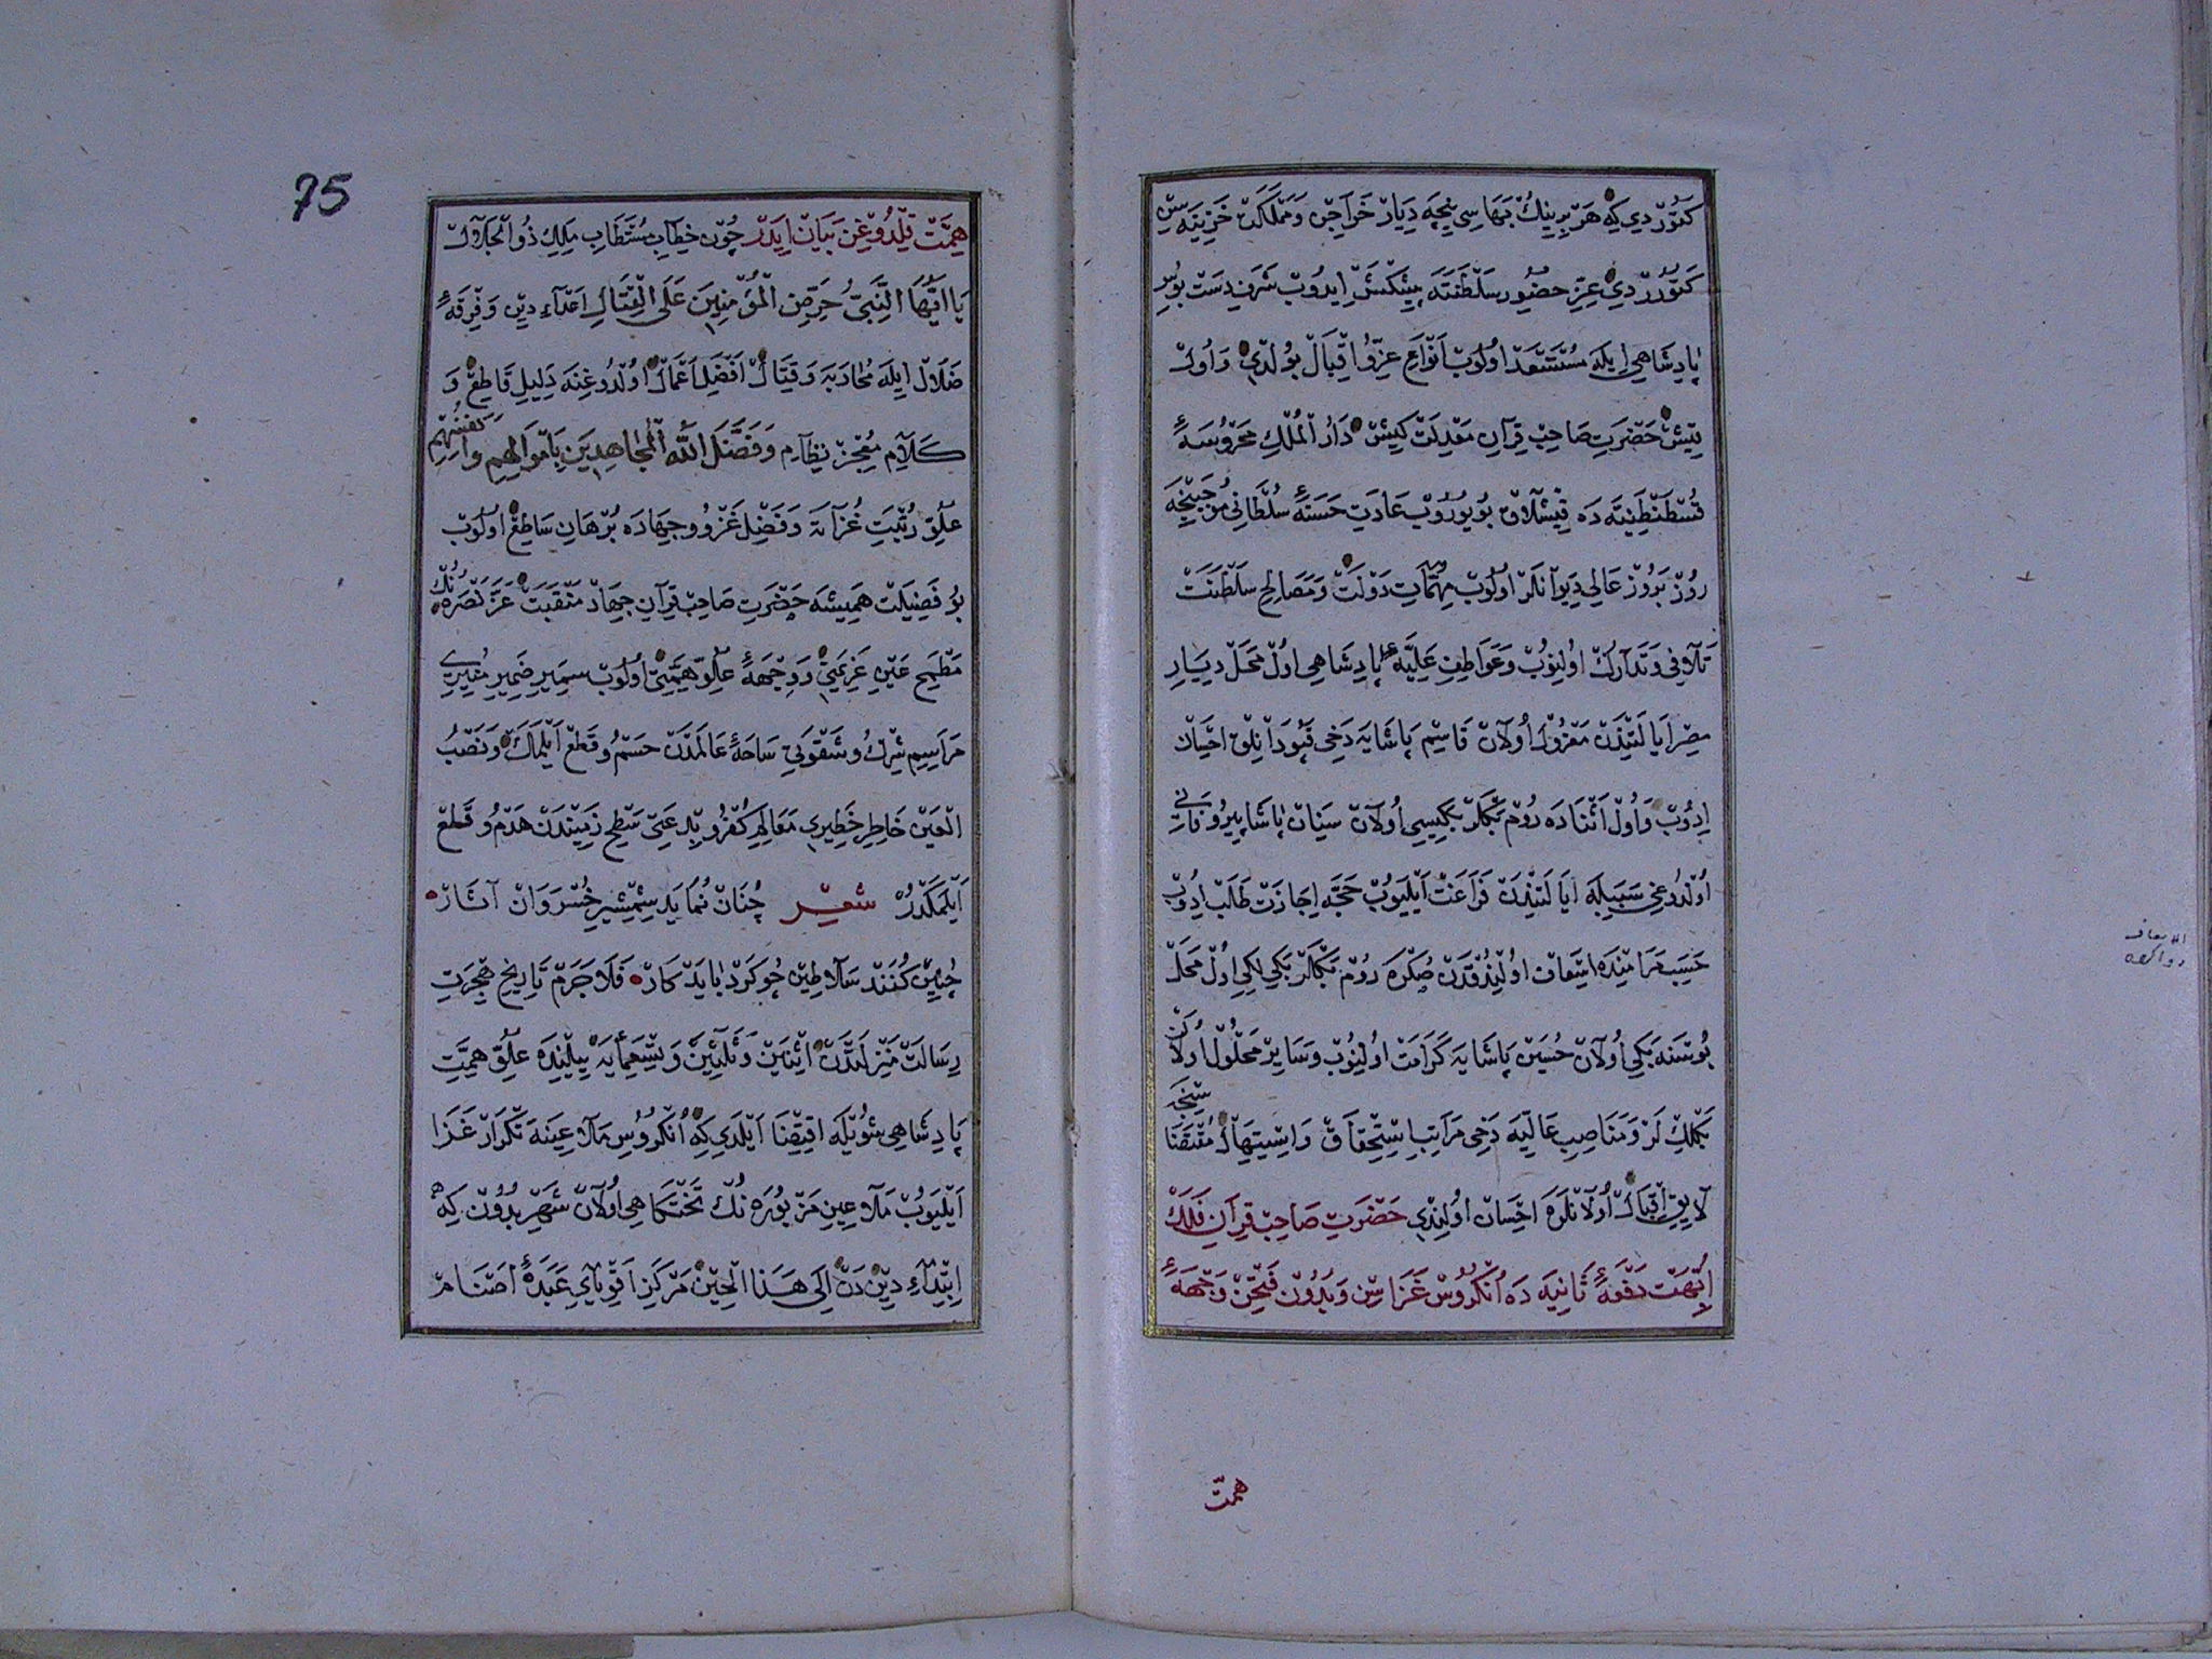 كتوردي كه هر برينك بهاسي نيچه ديار خراجن و مملكت خزينه سن
كتورردي عزّ حضور سلطنته پيشكش ايدوب شرف دست بوس
پادشاهي ايله مستسعد اولوب انواع عزّ و اقبال بولدي و اول
قيش حضرت صاحب قران معدلت كيش دار الملك محروسهٔ
قسطنطنيه ده قيشلاق بويوروب عادت حسنهٔ سلطاني موجبنجه
روز بروز عالي ديوانلر اولوب مهمّات دولت و مصالح سلطنت
تلافي و تدارك اولنوب و عواطف عليّهٔ پادشاهي اول محل ديار
مصر ايالتندن معزول اولان قاسم پاشايه دخي قپودانلق احسان
ايدوب و اول اثناده روم بكلر بكيسي اولان سنان پاشا پير و فاني
اولدوغي سببيله ايالتندن فراغت ايليوب حجّه اجازت طلب ايدوب
حسب مرامنده اسعاف اولندقدن صكره روم بكلر بكي لكي اول محل
بوسنه بكي اولان حسين پاشايه كرامت اولنوب و ساير محلول اولان
سنجق بكلك لر و مناصب عاليه دخي مراتب استحقاق و استيهال مقتضاسنجه
لايق اقبال اولانلره احسان اولندي حضرت صاحب قران فلك
ابّهت دفعهٔ ثانيه ده انكروس غزاسن و بدون فتحن وجههٔ
همّت
75
همّت قيلدوغن بيان ايدر چون خطاب مستطاب ملك ذو الجلال
يا ايّها النّبيّ حرّض المؤمنين على القتال اعداء دين و فرقهٔ
ضلال ايله محاربه و قتال افضل اعمال اولدوغنه دليل قاطع و
كلام معجز نظام و فضّل الله المجاهدين باموالهم وانفسهم
علوّ رتبت غزاته و فضل غزو و جهاده برهان ساطع اولوب
بو فضيلت هميشه حضرت صاحب قران جهاد منقبت عزّ نصره نك
مطمح عين عزيمتي و وجههٔ علوّ همّتي اولوب سمير ضمير منيري
مراسم شرك و شقوتي ساحهٔ عالمدن حسم و قطع ايلمك و نصب
العين خاطر خطيري معالم كفر و بدعتي سطح زميندن هدم و قلع
ايلمكدر شعر چنان نمايد شمشير خسروان آثار
چنين كنند سلاطين چو كرد بايد كار فلا جرم تاريخ هجرت
رسالت منزلتدن اثنين و ثلثين و تسعمايه ييلنده علوّ همّت
پادشاهي شويله اقتضا ايلدي كه انكروس ملاعينه تكرار غزا
ايليوب ملاعين مزبوره نك تختكاهي اولان شهر بدون كه
ابتداء دين دن الى هذا الحين مركز اقوياي عبدهٔ اصنام